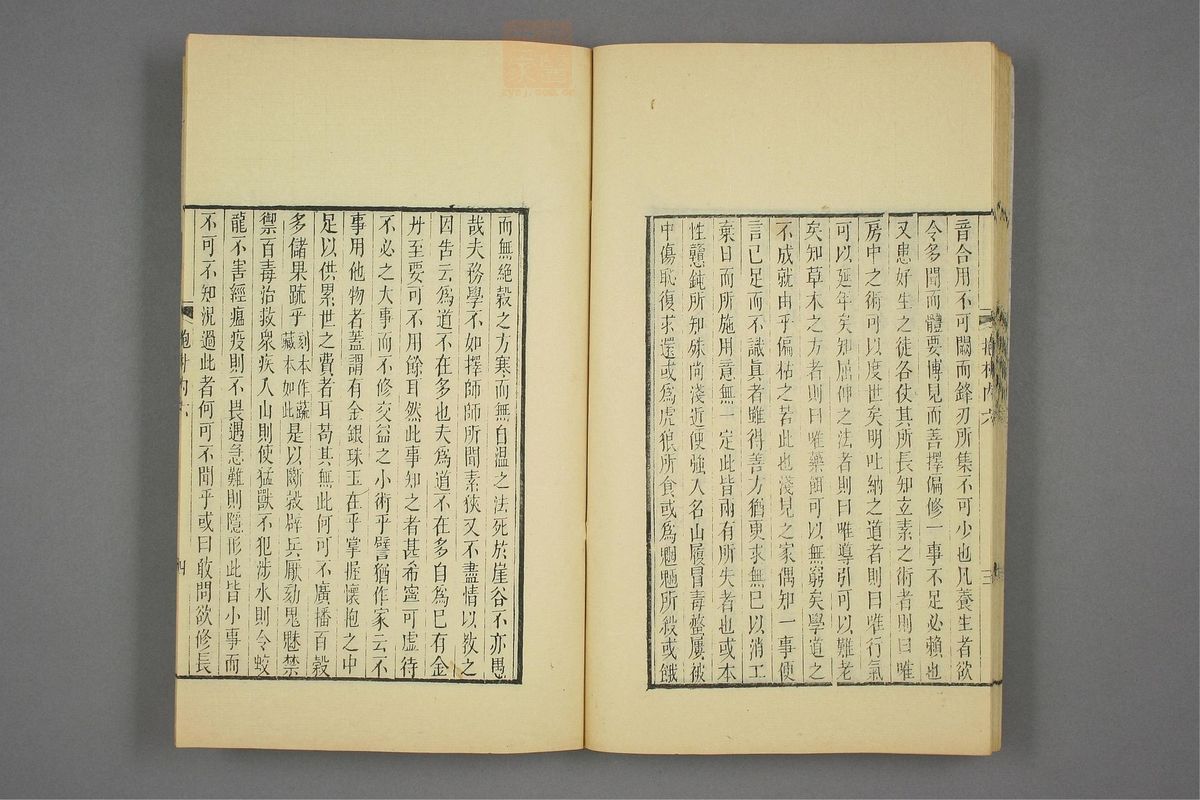 音合用不可闕而鋒刃所集不可少也凡養生者欲
令多聞而體要博見而善擇偏修一事不足必賴也
又患好生之徒各仗其所長知立素之術者則曰唯
房中之術可以度世矣明吐納之道者則曰唯行氣
可以延年矣知屈伸之法者則曰唯導引可以難老
矣知草木之方者則曰唯藥餌可以無窮矣學道之
不成就由乎偏枯之若此也淺見之家偶知一事便
言已足而不識眞者雖得善方猶更求無已以消工
棄日而所施用意無一定此皆兩有所失者也或本
性戇鈍所知殊尚淺近便強入名山履冒毒螫屢被
中傷恥復求還或爲虎狼所食或爲魍魎所殺或餓
而無絶穀之方寒而無自溫之法死於崖谷不亦愚
哉夫務學不如擇師師所聞素狹又不盡情以教之
因告云爲道不在多也夫爲道不在多自爲已有金
丹至要可不用餘耳然此事知之者甚希寧可虛待
不必之大事而不修交益之小術乎譬猶作家云不
事用他物者蓋謂有金銀珠玉在乎掌握懷抱之中
足以供累世之費者耳苟其無此何可不廣播百穀
多儲果疏乎刻本作蔬藏本如此是以斷穀辟兵厭劾鬼魅禁
禦百毒治救衆疾入山則使猛獸不犯涉水則令蛟
龍不害經瘟疫則不畏遇急難則隱形此皆小事而
不可不知況過此者何可不聞乎或曰敢問欲修長
四